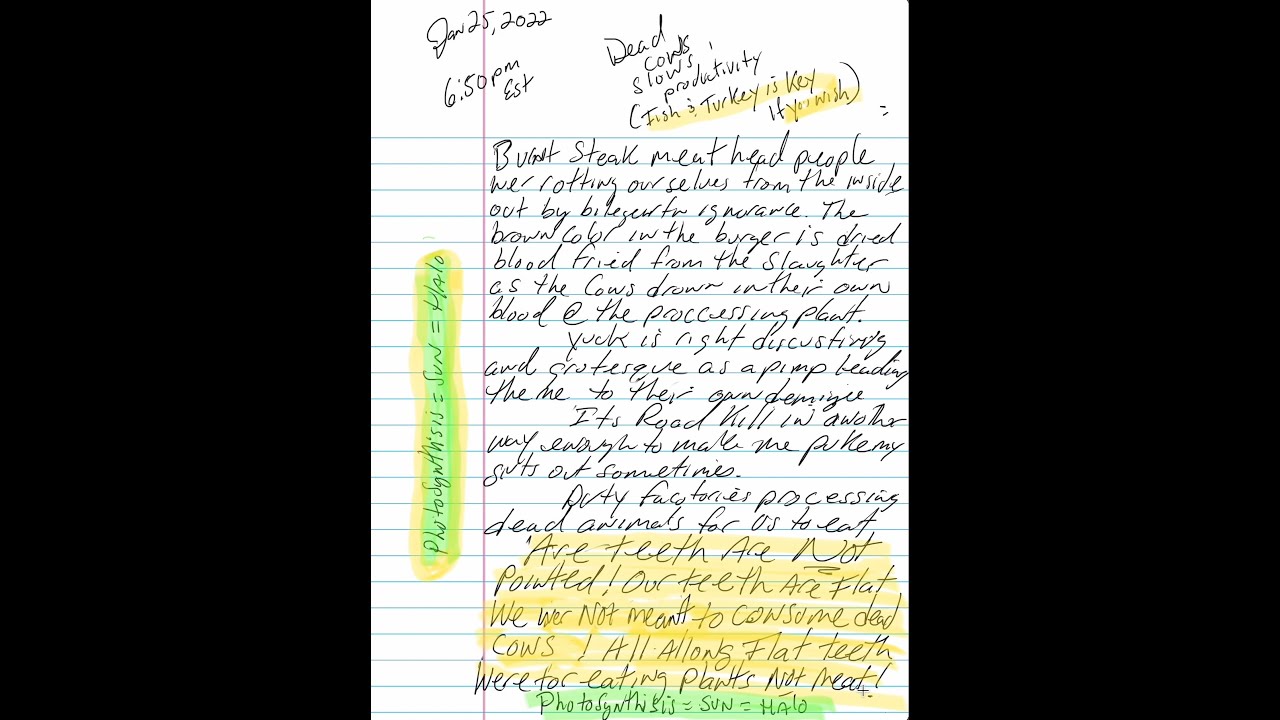 Jan 25, 2022
6:50pm
Est
Dead
cows
slows
productivity
(Fish & Turkey is Key
If you wish)
=
Burnt Steak meat head people
wer rotting ourselves from the inside
out by ignorance. The
brown color in the burger is dried
blood fried from the slaughter
as the Cows drown in their own
blood @ the proccessing plant.
Yuck is right discusting
and grotesque as a pimp leading
to their own
Its Road Kill in another
way enough to make me puke my
guts out sometimes.
Dirty factories processing
dead animals for Us to eat
Are teeth Are Not
Pointed! Our teeth Are Flat
We wer Not meant to consume dead
cows! All Allong Flat teeth
Were for eating plants Not Meat!
Photosynthisis = Sun = HAlo
Photosynthisis = Sun = HAlo